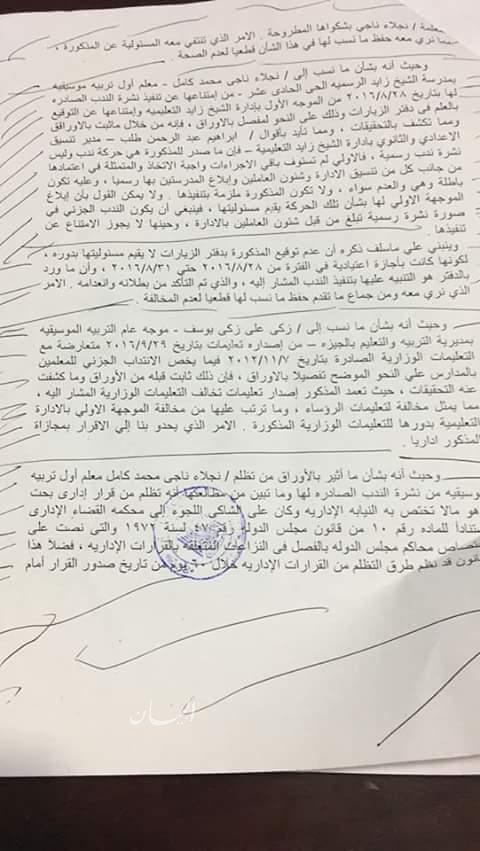 علمة / نجلاء ناجي بشكواها المطروحة . الامر الذي تنتفي معه المسئولية عن المذكورة ،
نري معه حفظ ما نسب لها في هذا الشأن قطعيا لعدم الصحة .
وحيث أنه بشأن ما نسب إلى / نجلاء ناجى محمد كامل - معلم أول تربيه موسيقيه
بمدرسة الشيخ زايد الرسميه الحى الحادى عشر - من إمتناعها عن تنفيذ نشرة الندب الصادره
لها بتاريخ ٢٠١٦/٨/٢٨ من الموجه الأول بإدارة الشيخ زايد التعليميه وإمتناعها عن التوقيع
بالعلم فى دفتر الزيارات وذلك على النحو المفصل بالاوراق ، فإنه من خلال ماثبت بالاوراق
ومما تكشف بالتحقيقات ، ومما تأيد بأقوال / ابراهيم عبد الرحمن طلب – مدير تنسيق
الاعدادي والثانوي بادارة الشيخ زايد التعليمية – فإن ما صدر للمذكورة هي حركة ندب وليس
نشرة ندب رسمية ، فالاولي لم تستوف باقي الاجراءات واجبة الاتخاذ والمتمثلة في اعتمادها
من جانب كل من تنسيق الادارة وشئون العاملين وإبلاغ المدرستين بها رسميا ، وعليه تكون
باطلة وهي والعدم سواء ، ولا تكون المذكورة ملزمة بتنفيذها . ولا يمكن القول بأن إبلاغ
الموجهة الاولي لها بشأن تلك الحركة يقيم مسئوليتها ، فينبغي أن يكون الندب الجزئي في
صورة نشرة رسمية تبلغ من قبل شئون العاملين بالادارة ، وحينها لا يجوز الامتناع عن
تنفيذها .
وينبني علي ماسلف ذكره أن عدم توقيع المذكورة بدفتر الزيارات لا يقيم مسئوليتها بدوره ،
لكونها كانت بأجازة اعتيادية في الفترة من ٢٠١٦/٨/٢٨ حتي ٢٠١٦/٨/٣١ ، وأن ما ورد
بالدفتر هو التنبيه عليها بتنفيذ الندب المشار إليه ، والذي تم التأكد من بطلانه وانعدامه . الامر
الذي نري معه ومن جماع ما تقدم حفظ ما نسب لها قطعيا لعدم المخالفة .
وحيث أنه بشأن ما نسب إلى / زكى على زكى يوسف - موجه عام التربيه الموسيقيه
بمديرية التربيه والتعليم بالجيزه – من إصداره تعليمات بتاريخ ٢٠١٦/٩/٢٩ متعارضة مع
التعليمات الوزارية الصادرة بتاريخ ٢٠١٢/١١/٧ فيما يخص الانتداب الجزئي للمعلمين
بالمدارس علي النحو الموضح تفصيلا بالاوراق ، فإن ذلك ثابت قبله من الأوراق وما كشفت
عنه التحقيقات ، حيث تعمد المذكور إصدار تعليمات تخالف التعليمات الوزارية المشار اليه ،
مما يمثل مخالفة لتعليمات الرؤساء ، وما ترتب عليها من مخالفة الموجهة الاولي بالادارة
التعليمية بدورها للتعليمات الوزارية المذكورة . الامر الذي يحدو بنا إلي الاقرار بمجازاة
المذكور اداريا .
وحيث أنه بشأن ما أثير بالأوراق من تظلم / نجلاء ناجى محمد كامل معلم أول تربيه
وسيقيه من نشرة الندب الصادره لها وما تبين من مطالعتها أنه تظلم من قرار إدارى بحت
هو مالا تختص به النيابه الإداريه وكان على الشاكي اللجوء إلى محكمه القضاء الإدارى
ستناداً للماده رقم ١٠ من قانون مجلس الدوله رقم ٤٧ لسنة ١٩٧٢ والتى نصت على
ختصاص محاكم مجلس الدوله بالفصل فى النزاعات المتعلقه بالقرارات الإداريه ، فضلاً هذا
قانون قد نظم طرق التظلم من القرارات الإداريه خلال ٦٠ يوم من تاريخ صدور القرار أمام